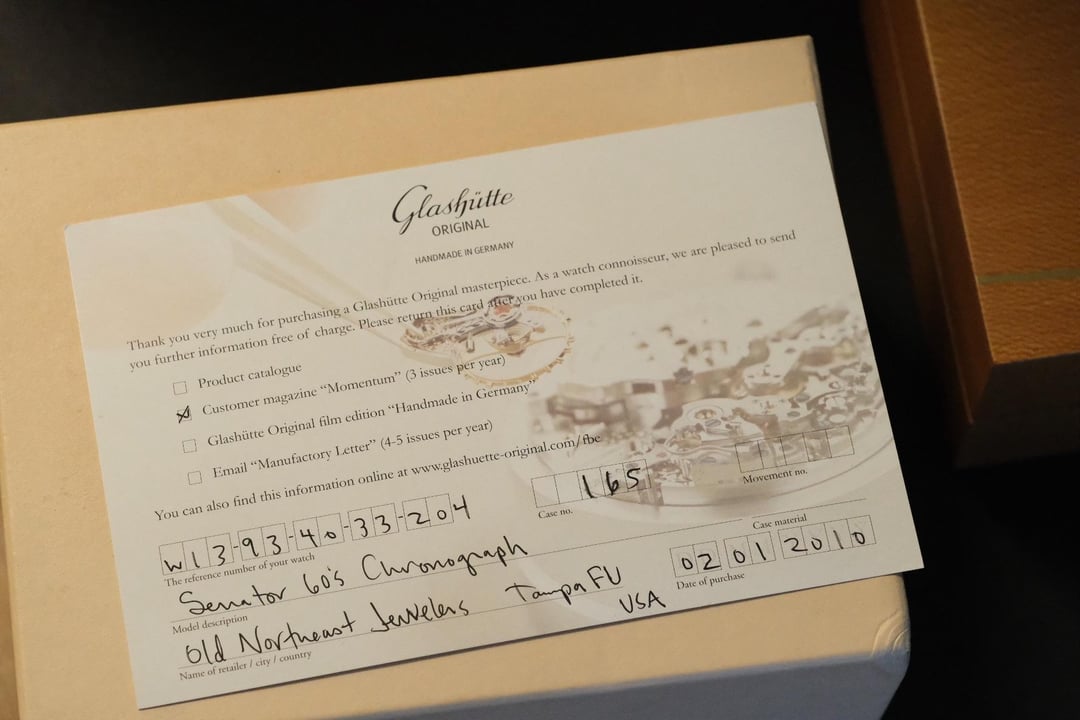 Glashütte
ORIGINAL
HANDMADE IN GERMANY
Thank you very much for purchasing a Glashütte Original masterpiece. As a watch connoisseur, we are pleased to send
you further information free of charge. Please return this card after you have completed it.
Product catalogue
Customer magazine “Momentum” (3 issues per year)
Glashütte Original film edition “Handmade in Germany”
Email “Manufactory Letter” (4-5 issues per year)
You can also find this information online at www.glashuette-original.com/fbe
W13-93-40-33-204 165
The reference number of your watch Case no. Movement no.
Senator 60's Chronograph
Model description Case material
02 01 2010
Date of purchase
Old Northeast Jewelers Tampa FL
USA
Name of retailer / city / country